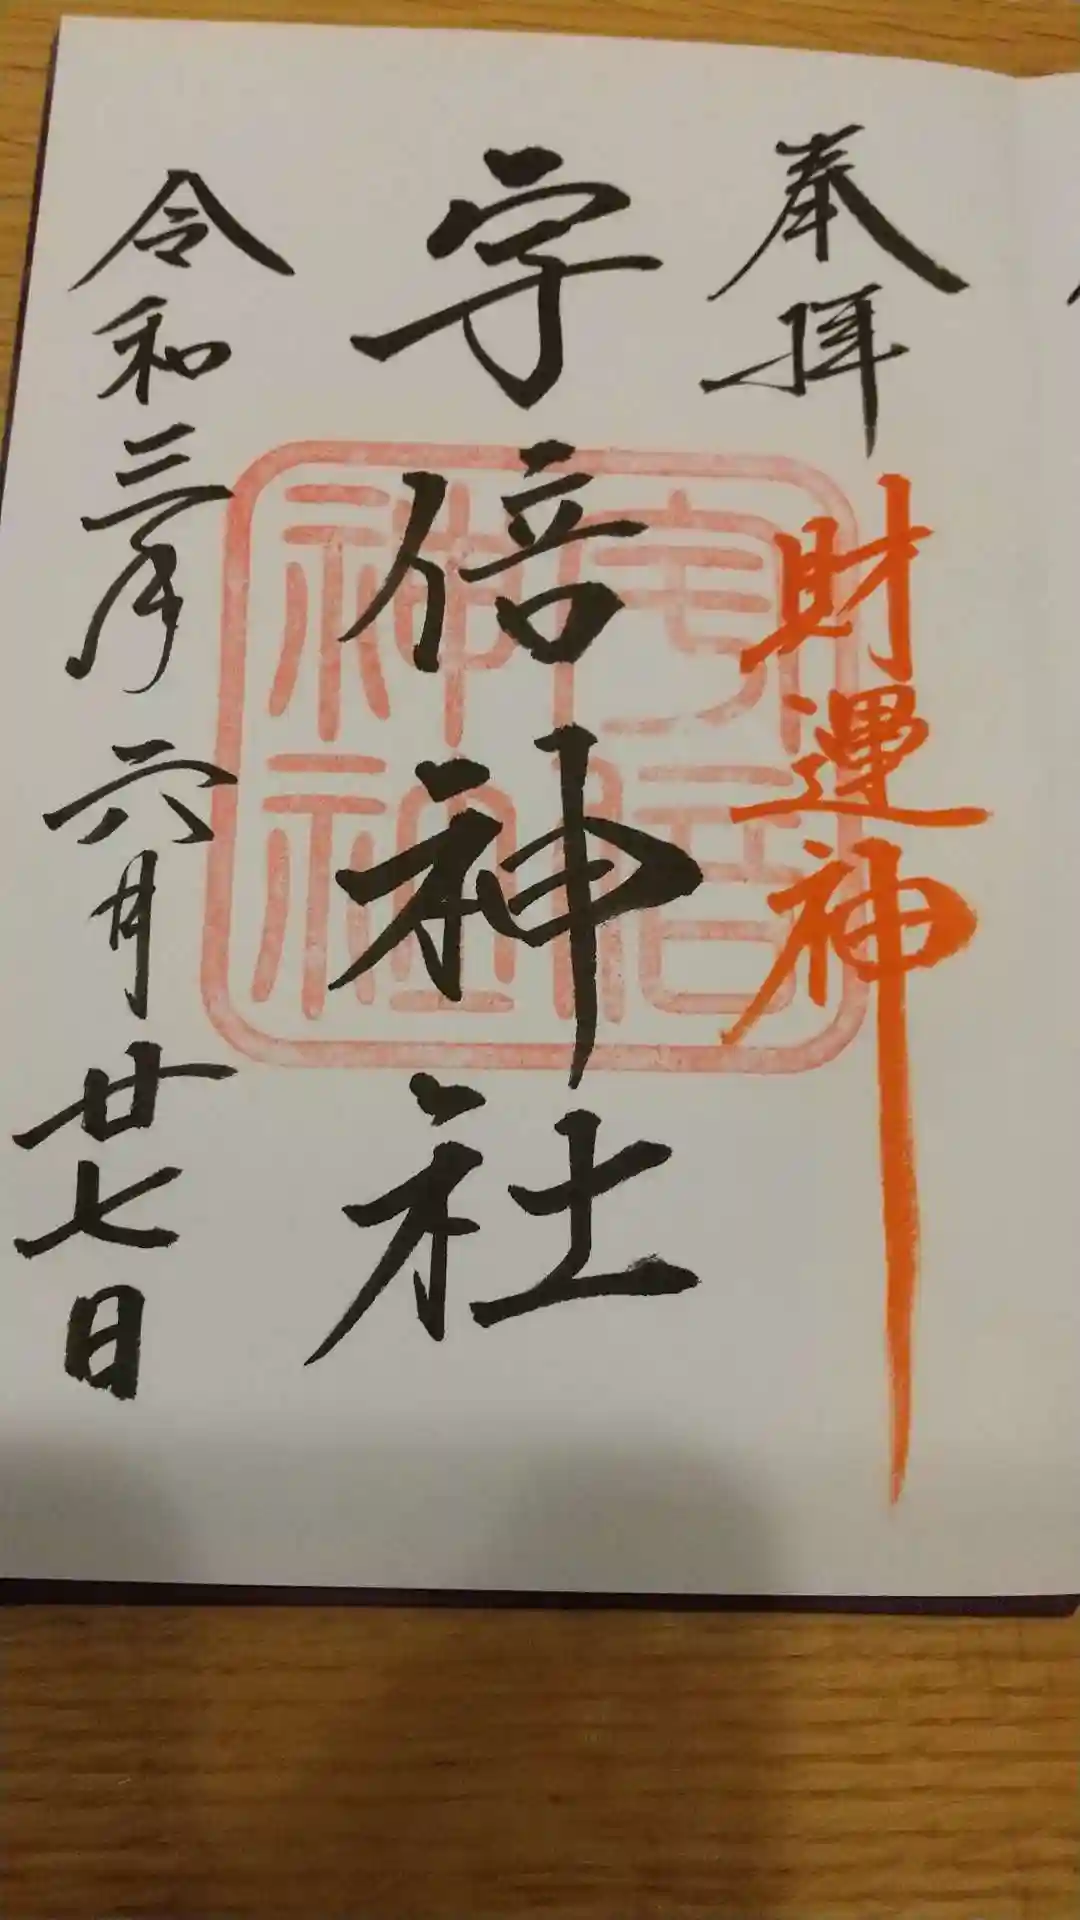 奉拝
財運神
宇倍神社
令和三年六月廿七日
宇倍
神社